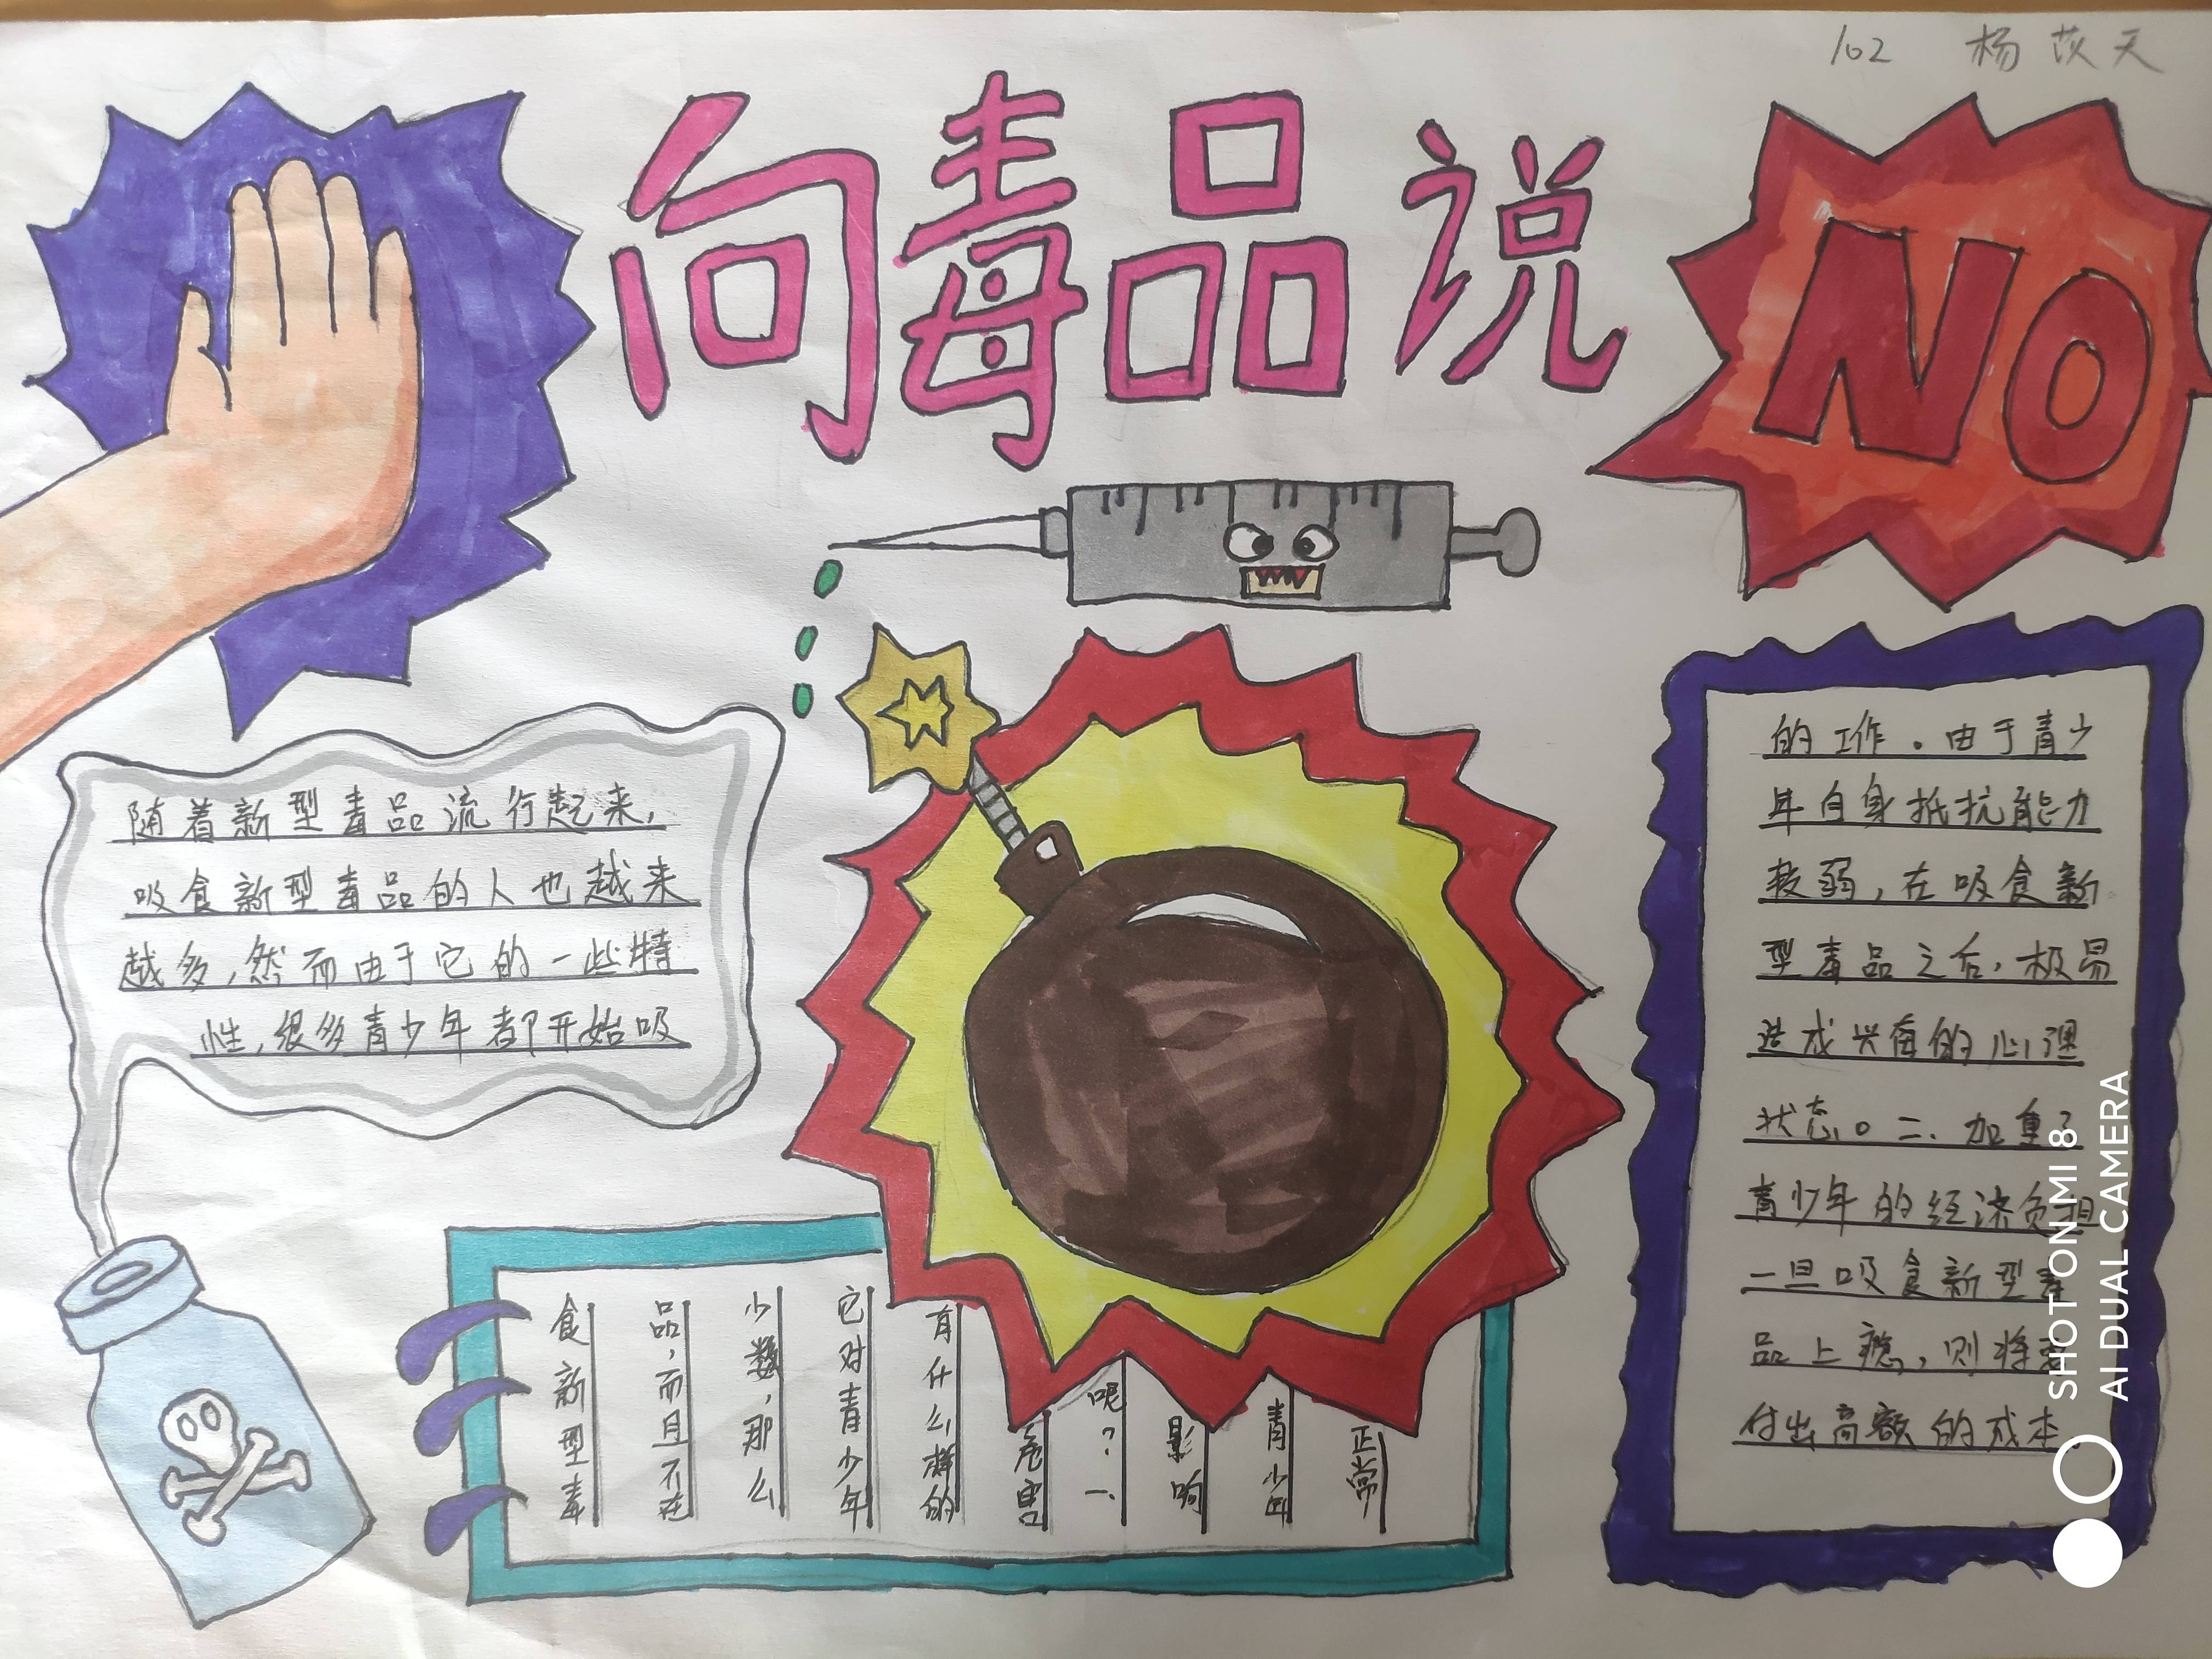 102 杨茨天
向毒品说
NO
随着新型毒品流行起来,
吸食新型毒品的人也越来
越多,然而由于它的一些特
性,很多青少年都开始吸
食新型毒
品,而且不在
少数,那么
它对青少年
有什么样的
危害
呢?一、
影响
青少年
正常
的工作。由于青少
年自身抵抗能力
较弱,在吸食新
型毒品之后,极易
造成兴奋的心理
状态。二、加重了
青少年的经济负担
一旦吸食新型毒
品上瘾,则将
付出高额的成本。
SHOT ON MI 8
AI DUAL CAMERA